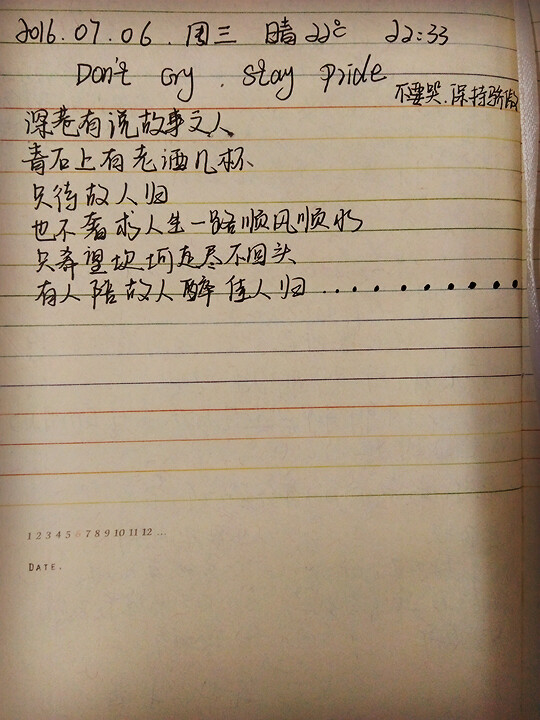 2016.07.06.周三 晴 22℃ 22:33
Don't cry. stay pride
不要哭.保持骄傲
深巷有说故事文人
青石上有老酒几杯
只待故人归
也不奢求人生一路顺风顺水
只希望坎坷走尽不回头
有人陪故人醉 佳人归..........
1 2 3 4 5 6 7 8 9 10 11 12 ...
DATE.